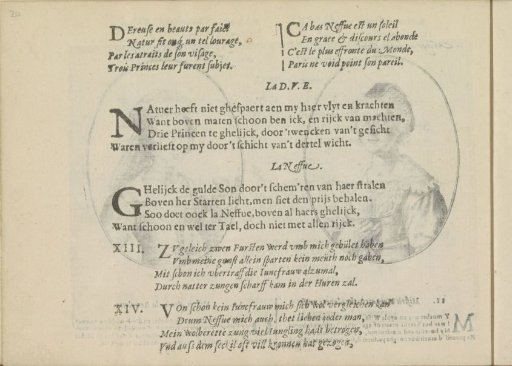 DEreuse en beauté par faicte
Natur fit onq un tel ouvrage,
Par les atraits de son visage,
Trois Princes leur furent subjet.
CA bas Neffue est un soleil
En grace & discours el abonde
C'est le plus effronte du Monde,
Paris ne void point son pareil.
LA D. V. E.
NAtuer heeft niet ghespaert aen my haer vlyt en krachten
Want boven maten schoon ben ick, en rijck van machten,
Drie Princen te ghelijck, door 'twencken van't gesicht
Waren verlieft op my door 'tschicht van't dertel wicht.
La Neffue.
GHelijck de gulde Son door't schem'ren van haer stralen
Boven her Starren licht, men siet den prijs behalen.
Soo doet oock la Neffue, boven al haers ghelijck,
Want schoon en wel ter Tael, doch niet met allen rijck.
XIII. ZVgleich zwen Fursten werd vmb mich gebület haben
Vmb meine gunst allein sparten kein meuth noch gaben,
Mit schon ich vbertraff die Iuncfrauw alzumal,
Durch natter zungen scharff kam in der Huren zal.
XIV. VOn schon kein Iuncfrauw mich sich wol vergleichen kan
Dann Neffue mich auch, thet lieben jeder man,
Mein wolberette zung viel Iungling hadt betrogen,
Vnd auß dem seckel oft vill kronnen hat gezogen,